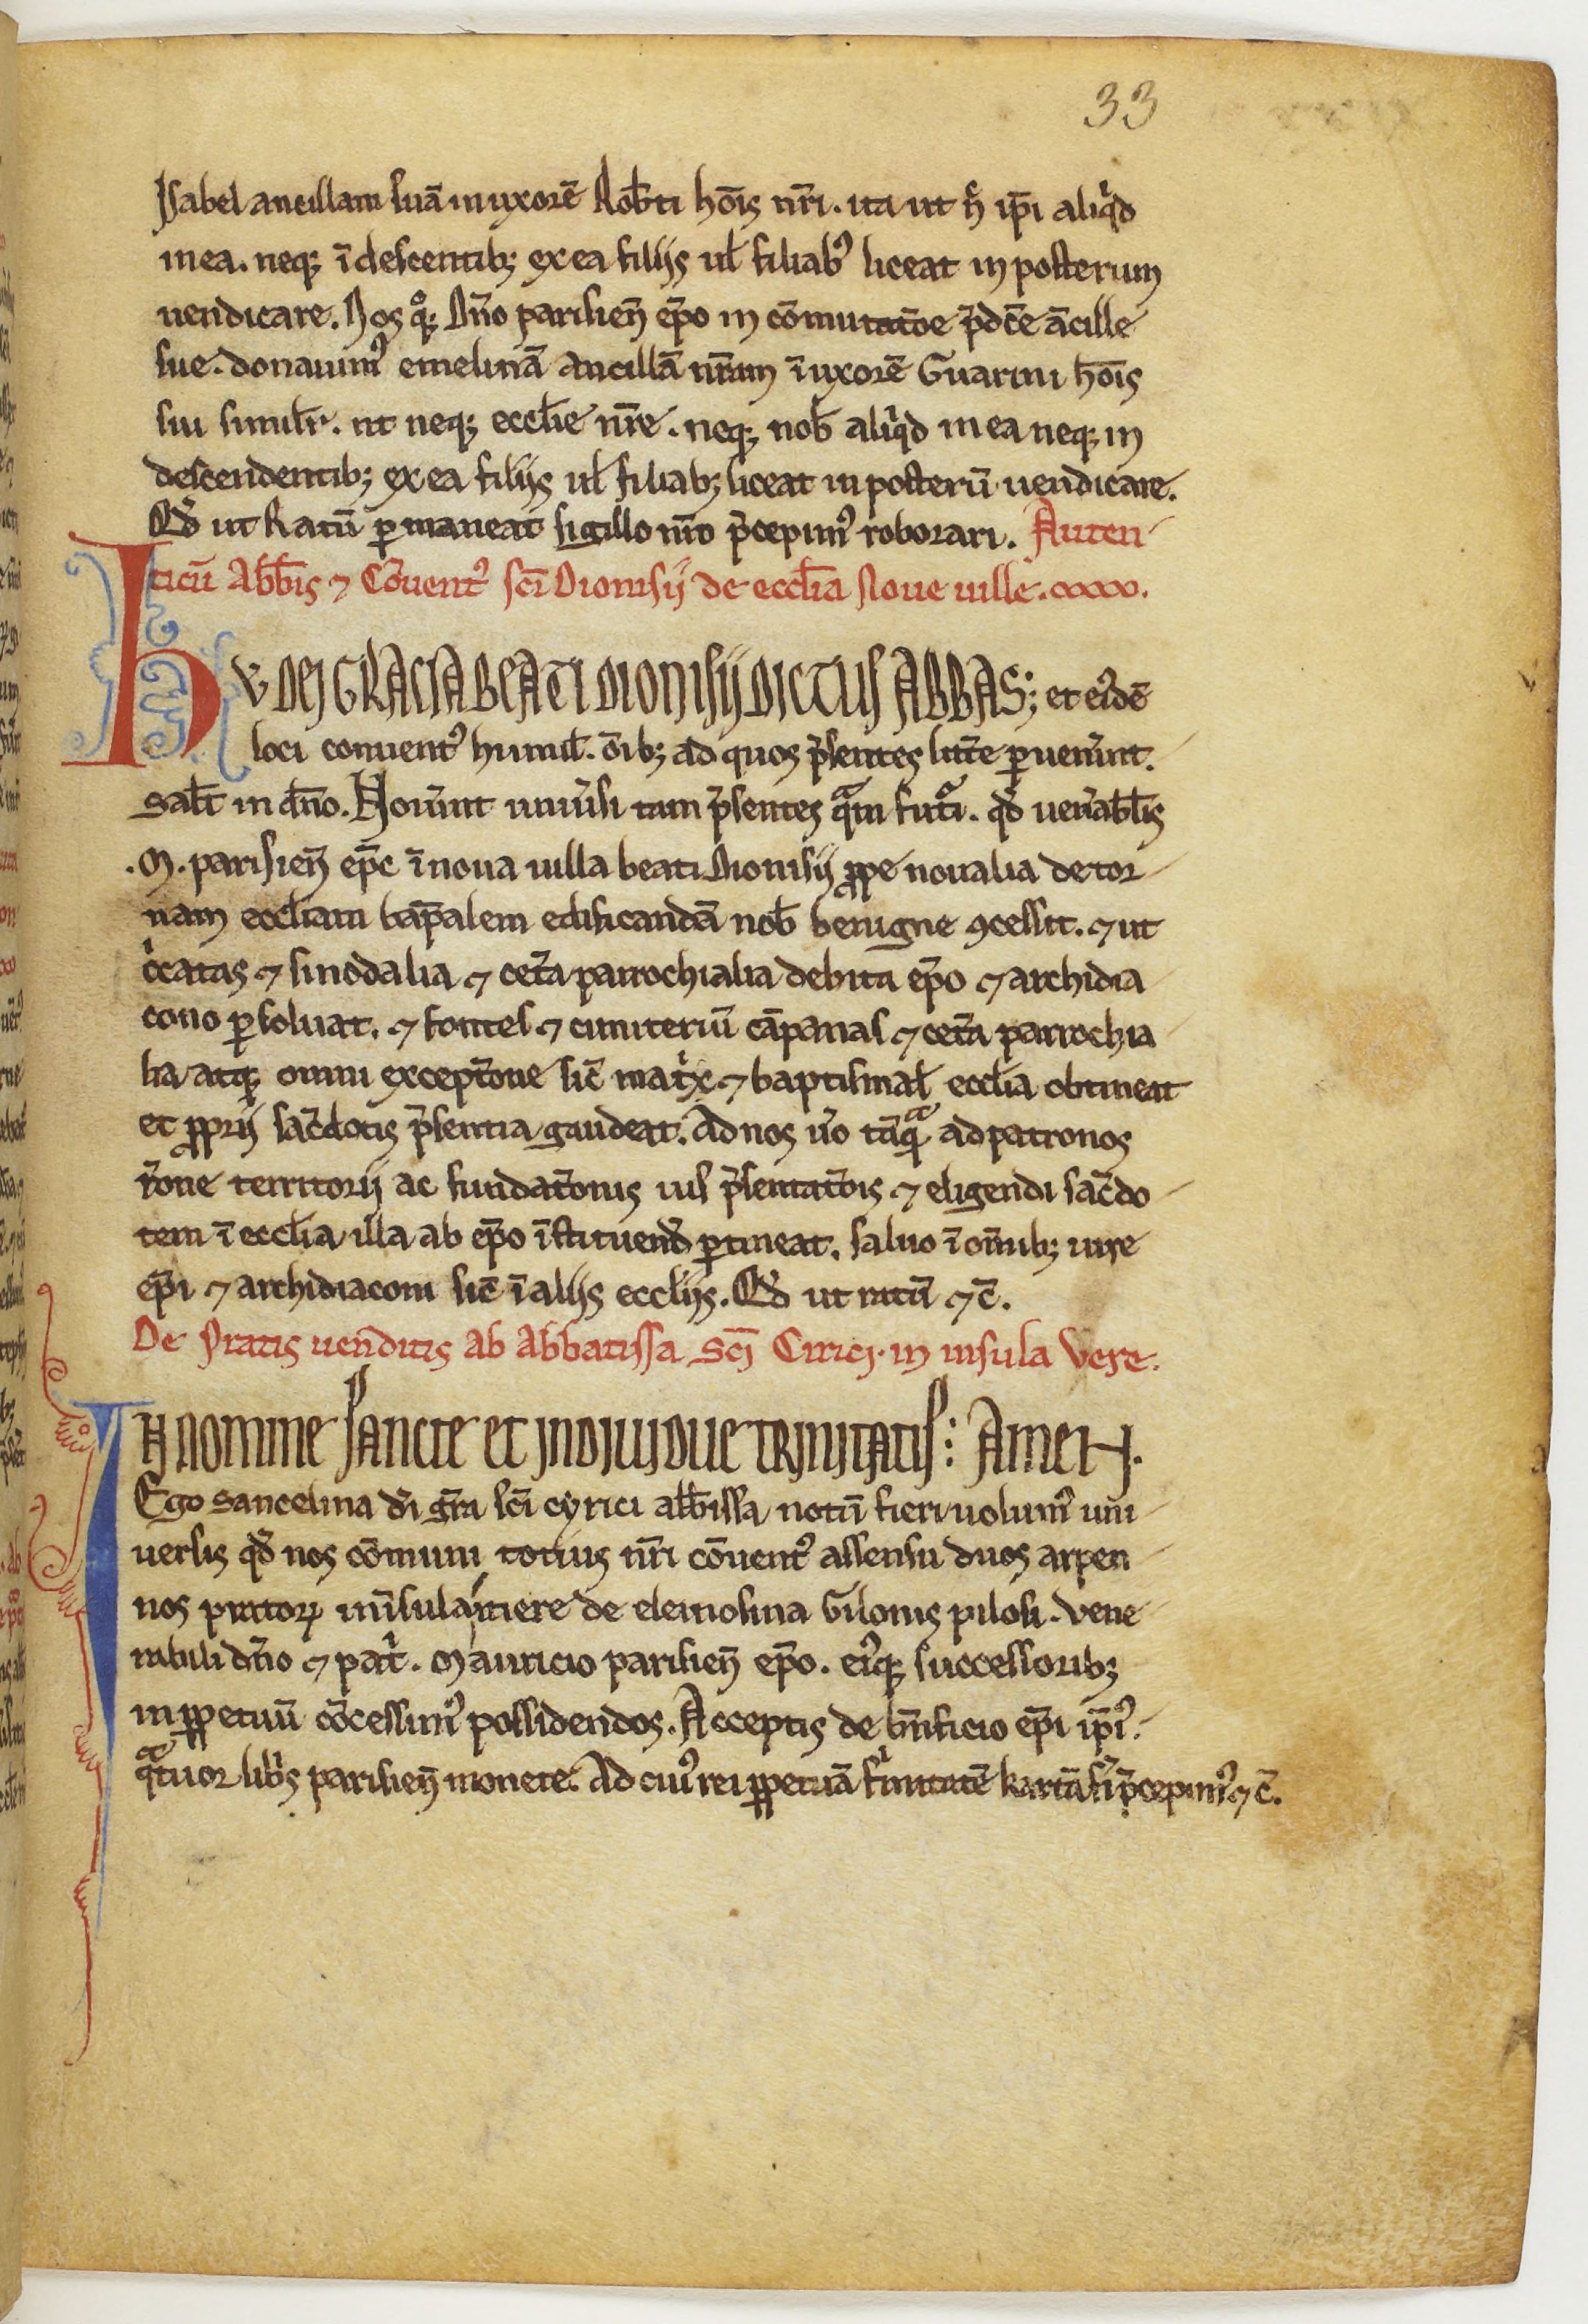 33
Isabel ancillam suā in uxorē Rob̄ti hōis nr̄i. ita ut nͥ ip̄i aliqͥd
in ea. neq; ī descentib; ex ea filijs ul̄ filiabꝰ liceat in posterum
uendicare. Nos qͦq; Dn̄o parisien̄ ep̄o in cōmutatōe p̄dc̄e ācille
sue. donauimꝰ emelinā ancillā nr̄am ī uxorē Guarini hōis
sui similr̄. ut neq; eccl̄ie nr̄e. neq; nob̄ aliqͥd in ea neq; in
descendentib; ex ea filijs ul̄ filiab; liceat in posterū uendicare.
Qd̄ ut Ratū ꝑmaneat sigillo nr̄o p̄cepimꝰ roborari. Auten
ticū Abb̄is ⁊ Cōuentꝰ sc̄i Dionisij de eccl̄ia Noue uille.
HV DEI GRACIA BEATI DIONISIJ DICTUS ABBAS; et eiꝰdē
loci conuentꝰ humil̄. ōib; ad quos p̄sentes litt̄e ꝑuenerīnt.
Sal̄t in dn̄o. Nouerīnt uniu̾si tam p̄sentes qͣm futͥ. qd̄ uen̾abl̄is
.M. parisien̄ ep̄c ī noua uilla beati Dionisij ꝓpe noualia de tor
nam eccl̄iam bap̄alem edificandā nob̄ benigne ꝯcessit. ⁊ ut
cͥcatas ⁊ sinodalia ⁊ cet̾a parrochialia debita ep̄o ⁊ archidia
cono ꝑsoluat. ⁊ fontes ⁊ cimiteriū cāpanas ⁊ cet̾a parrochia
lia atq; omni exceptōne sic̄ matͥx ⁊ baptismal̄ eccl̄ia obtineat
et ꝓprij sac̾dotis p̄sentia gaudeat. Ad nos u̾o tāqͣ ad patronos
r̄one territorij ac fundatōnis ius p̄sentatōis ⁊ eligendi sac̾do
tem ī eccl̄ia illa ab ep̄o īstituend̄ ꝑtineat. saluo ī om̄ib; iure
ep̄i ⁊ archidiaconi sic̄ ī alijs eccl̄ijs. Qd̄ ut ratū ⁊ c̄.
De Pratis uenditis Ab Abbatissa Sc̄i Cirici. in insula Vere.
IN NOMINE SANCTE ET INDIUIDUE TRINITATIS: AMEN.
Ego Sancelina dī gr̄a sc̄i cyrici abb̄issa notū fieri uolumꝰ uni
uersis qd̄ nos cōmuni totius nr̄i cōuentꝰ assensu duos arpen
nos pratoꝝ in insula de elemosina Gilonis pilosi. Vene
rabili dn̄o ⁊ patͥ. Mauricio parisien̄ ep̄o. eiꝰq; successorib;
in ꝑpetuū cōcessimꝰ possidendos. Acceptis de bn̄ficio ep̄i ip̄iꝰ.
qͣtuor libͥs parisien̄ monete. Ad cuiꝰ rei ꝑpetuā fͥmitatē kartā fiͥ p̄cepimꝰ ⁊ c̄.